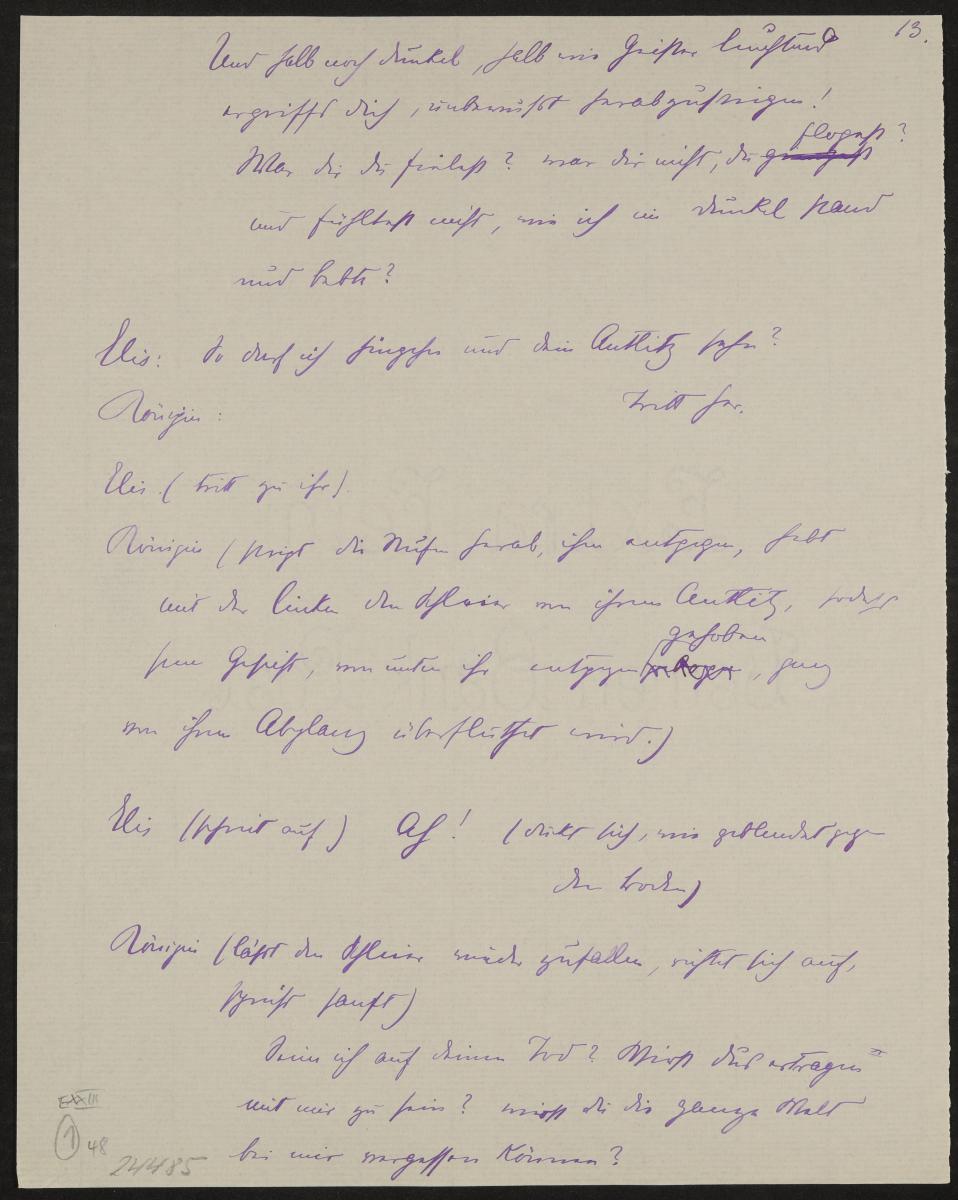 13.
Und halb noch dunkel, halb wie Geister leuchtend
ergriffs dich, unbewußt herabzusteigen!
flogst?
War dir du fielest? war dir nicht, du
und fühltest nicht, wie ich im Dunkel stand
und bebte?
Elis: So darf ich hingehn und dein Antlitz sehn?
Königin: Tritt her.
Elis. (tritt zu ihr).
Königin (steigt die Stufen herab, ihm entgegen, hebt
mit der linken den Schleier von ihrem Antlitz, sodaß
gehoben
sein Gesicht, von unten ihr entgegen, ganz
von ihrem Abglanz überfluthet wird.)
Elis (schreit auf) Ah! (duckt sich, wie geblendet gegen
den Boden)
Königin (läßt den Schleier wieder zufallen, richtet sich auf,
spricht sanft)
Bin ich auf deinen Tod? Wirst Du's ertragen
mit mir zu sein? wirst du die ganze Welt
bei mir vergessen können?
EXXIII
1 48
24485